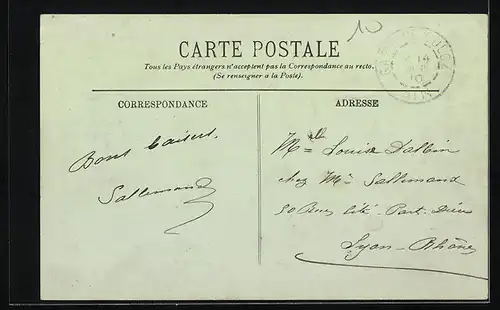 10
CARTE POSTALE
Tous les Pays étrangers n'acceptent pas la Correspondance au recto.
(Se renseigner à la Poste).
CORRESPONDANCE
ADRESSE
Bons baisers.
Sallemand
Mlle Louise Dalbin
chez Mr Sallemand
Cité Part-Dieu
Lyon-Rhône